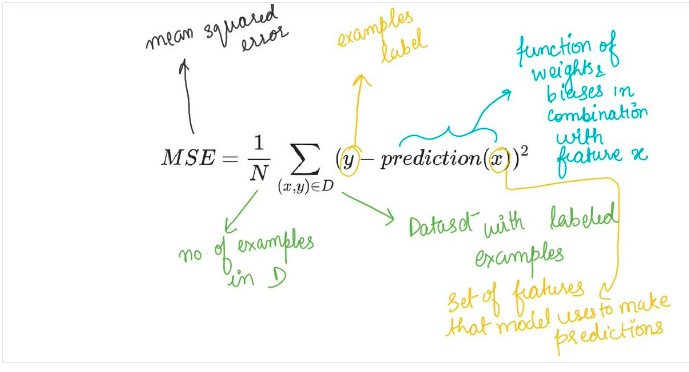 mean squared
error
examples
label
function of
weights &
biases in
combination
with
feature x
MSE = 1/N ∑ (x,y)∈D (y − prediction(x))²
no. of examples
in D
Dataset with labeled
examples
set of features
that model uses to make
predictions